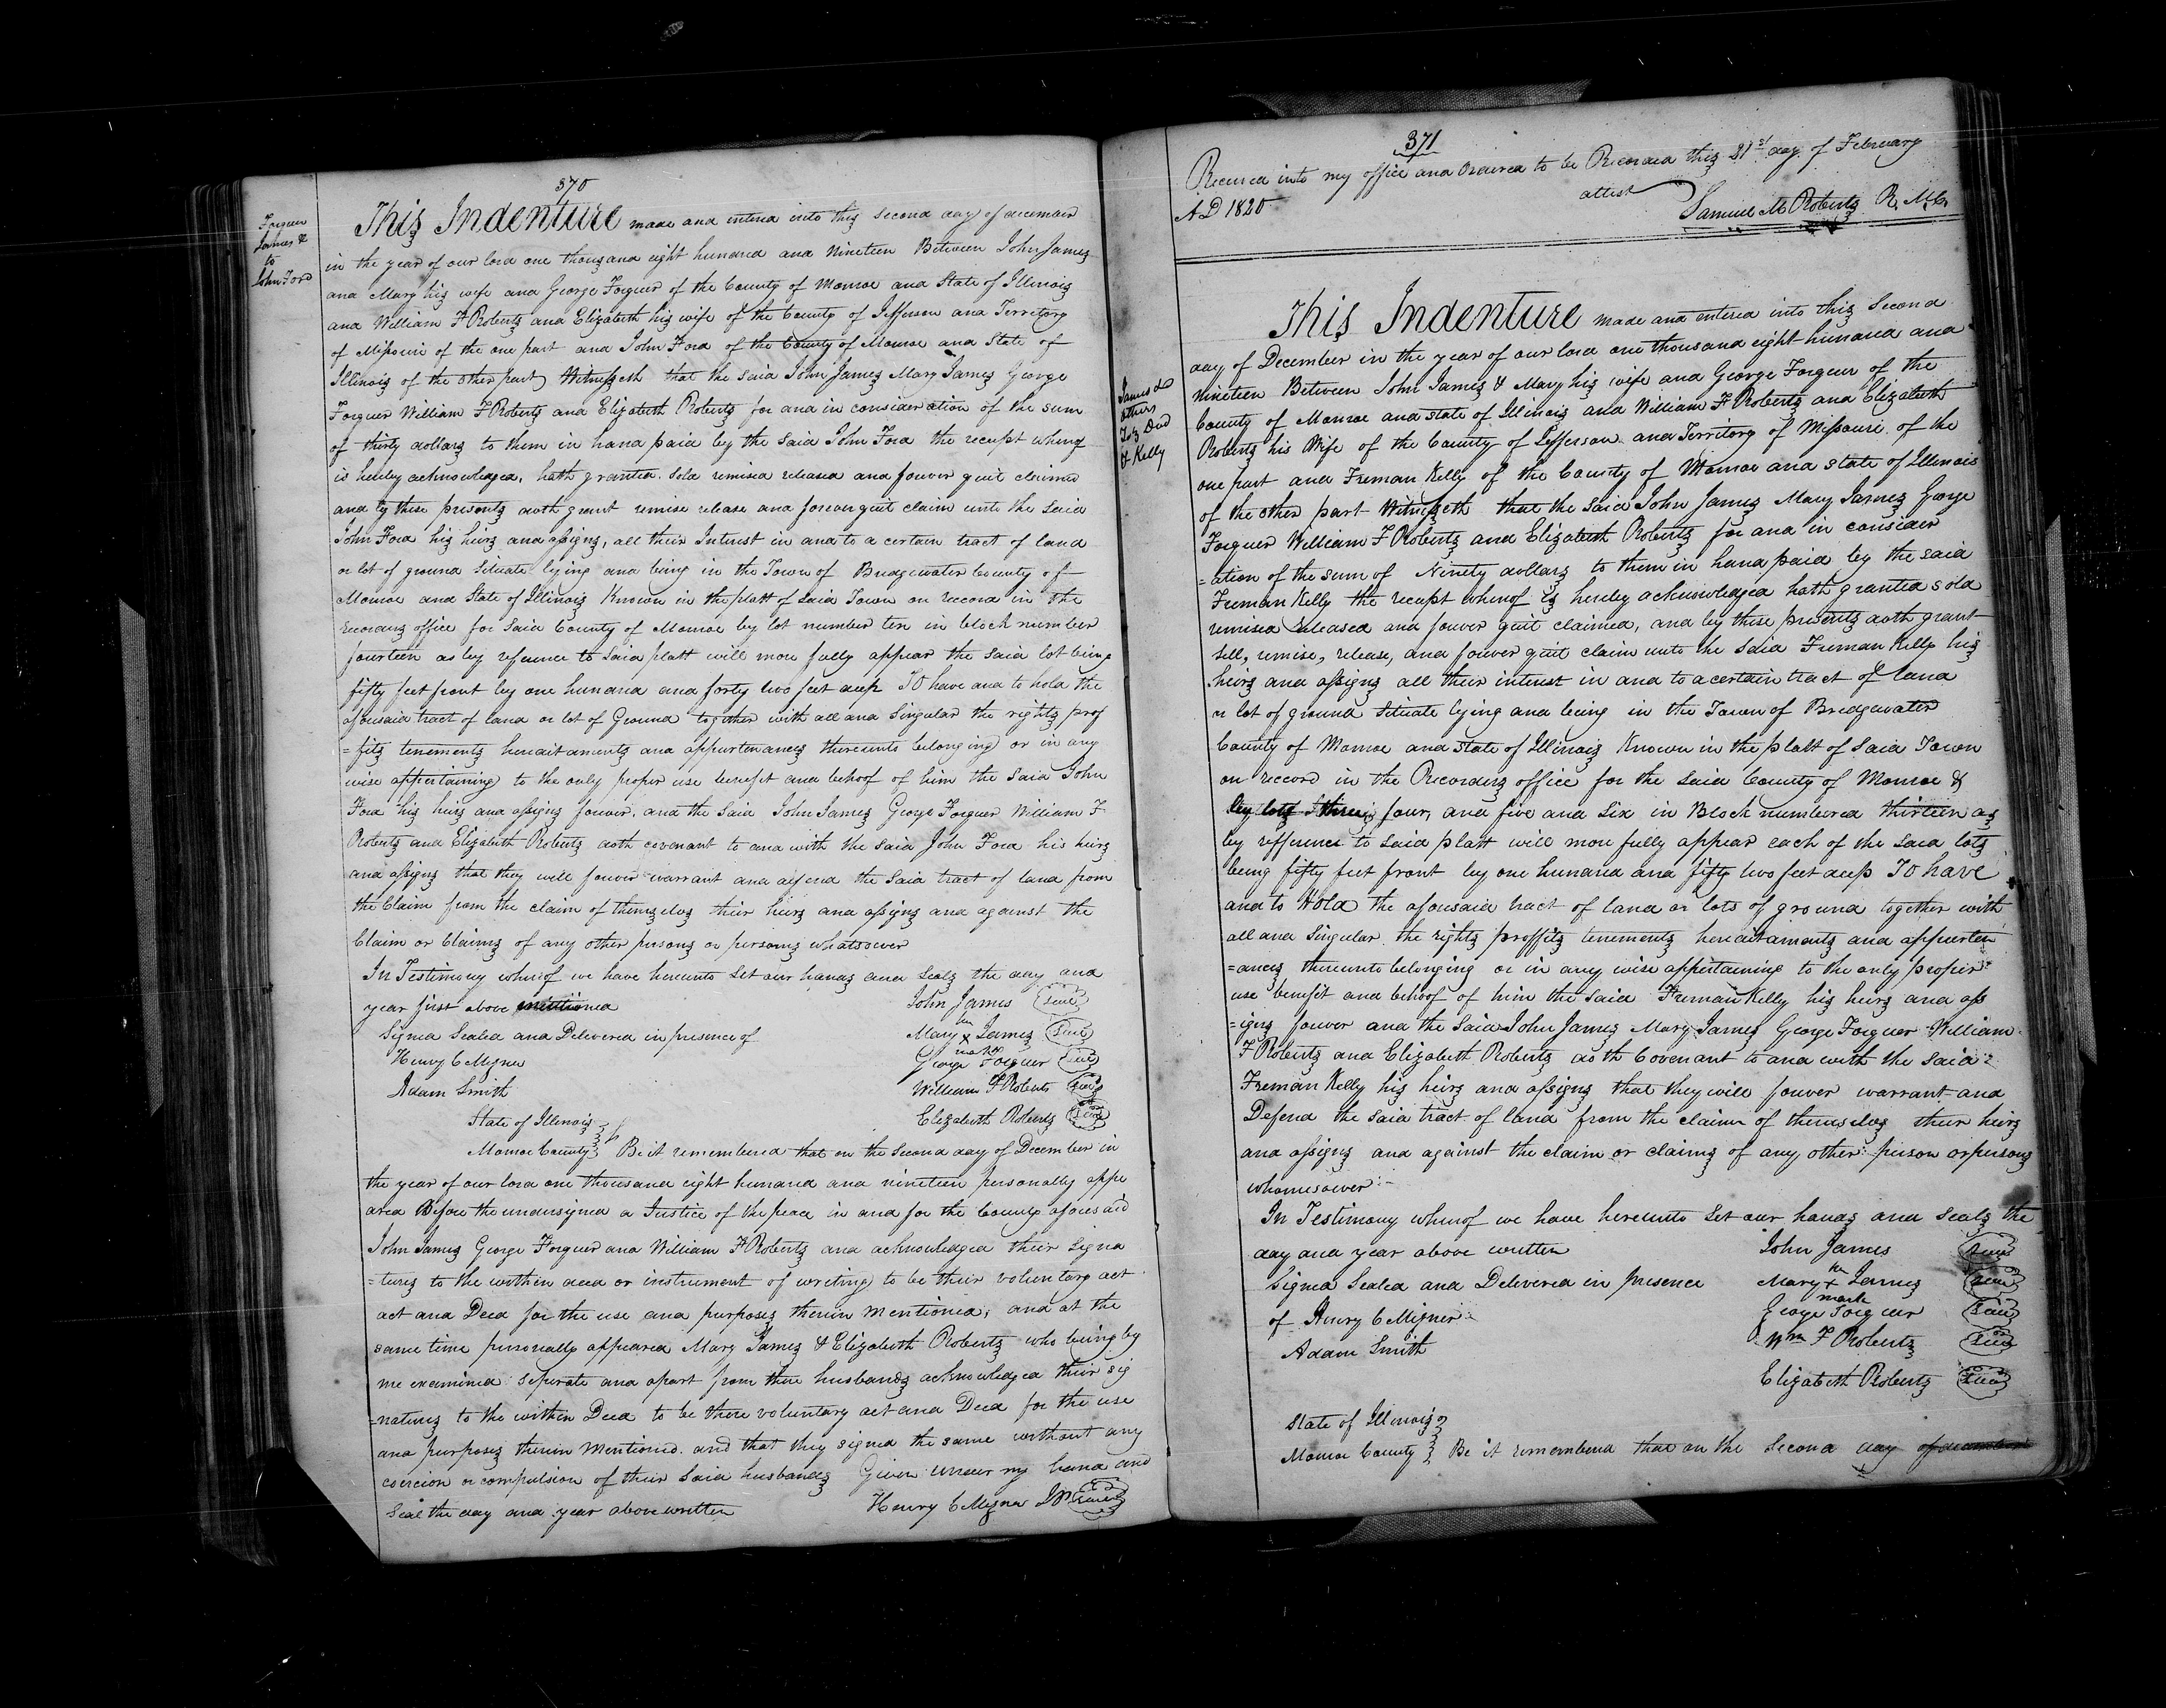 370
Forquer
James &
to
John Ford
This Indenture made and entered into this second day of december
in the year of our lord one thousand eight hundred and Nineteen Between John James
and Mary his wife and George Forquer of the County of Monroe and State of Illinois
and William F Roberts and Elizabeth his wife of the County of Jefferson and Territory
of Missouri of the one part and John Ford of the County of Monroe and State of
Illinois of the other part Witnesseth that the said John James Mary James George
Forquer William F Roberts and Elizabeth Roberts for and in consideration of the sum
of thirty dollars to them in hand paid by the said John Ford the receipt whereof
is hereby acknowledged, hath granted. sold remised released and forever quit claimed
and by these presents doth grant remise release and forever quit claim unto the said
John Ford his heirs and assigns, all their Interest in and to a certain tract of land
or lot of ground situate lying and being in the Town of Bridgewater County of
Monroe and State of Illinois Known in the platt of said Town on reccord in the
recorders office for said County of Monroe by lot number ten in block number
fourteen as by reference to said platt will more fully appear the said lot being
fifty feet front by one hundred and forty two feet deep To have and to hold the
aforesaid tract of land or lot of Ground together with all and singular the rights prof
=fits tenements hereditaments and appurtenances thereunto belonging or in any
wise appertaining to the only proper use benefit and behoof of him the said John
Ford his heirs and assigns forever. and the said John James George Forquer William F
Roberts and Elizabeth Roberts doth covenant to and with the said John Ford his heirs
and assigns that they will forever warrant and defend the said tract of land from
the Claim from the claim of themselves their heirs and assigns and against the
Claim or Claims of any other persons or persons whatsoever
In Testimony whereof we have hereunto set our hands and seals the day and
year first above mentioned John James seal
Signed Sealed and Delivered in presence of Mary her x mark James seal
Henry C Migner George Forquer seal
Adam Smith William F Roberts seal
State of Illinois Elizabeth Roberts seal
Monroe County Be it remembered that on the second day of December in
the year of our lord one thousand eight hundred and nineteen personally appe
ared Before the undersigned a Justice of the peace in and for the County aforesaid
John James George Forquer and William F Roberts and acknowledged their signa
=tures to the within deed or instrument of writing to be their voluntary act
act and Deed for the use and purposes therein mentioned, and at the
same time personally appeared Mary James & Elizabeth Roberts who being by
me examined seperate and apart from there husbands acknowledged their sig
=natures to the within Deed to be there voluntary act and Deed for the use
and purposes therein mentioned. and that they signed the same without any
coercion or compulsion of their said husbands Given under my hand and
seal the day and year above written Henry C Migner JP seal
371
Received into my office and ordered to be Recorded this 21st day of February
AD 1820 attest Samuel M Roberts R. M. C.
James &
others
To Deed
F Kelly
This Indenture made and entered into this Second
day of December in the year of our lord one thousand eight hundred and
nineteen Between John James & Mary his wife and George Forquer of the
County of Monroe and state of Illinois and William F Roberts and Elizabeth
Roberts his Wife of the County of Jefferson and Territory of Missouri of the
one part and Freman Kelly of the County of Monroe and state of Illinois
of the other part Witnesseth that the said John James Mary James George
Forquer William F Roberts and Elizabeth Roberts for and in consider
=ation of the sum of Ninety dollars to them in hand paid by the said
Freman Kelly the receipt whereof is hereby acknowledged hath granted sold
remised released and forever quit claimed, and by these presents doth grant
sell, remise, release, and forever quit claim unto he said Freman Kelly his
heirs and assigns all their interest in and to a certain tract of land
or lot of ground situate lying and being in the Town of Bredgewater
County of Monroe and state of Illinois Known in the platt of said Town
on reccord in the Recorders office for the said County of Monroe &
by lots three, four, and five and six in Block numbered thirteen as
by refference to said platt will more fully appear each of the said lots
being fifty feet front by one hundred and fifty two feet deep To have
and to Hold the aforesaid tract of land or lots of ground together with
all and singular the rights proffits tenements hereditaments and appurten
=ances thereunto belonging or in any wise appertaining to the only proper
use benefit and behoof of him the said Freman Kelly his heirs and ass
=igns forever and the said John James Mary James George Forquer William
F Roberts and Elizabeth Roberts doth Covenant to and with the said
Freman Kelly his heirs and assigns that they will forever warrant and
Defend the said tract of land from the claim of themselves their heirs
and assigns and against the claim or claims of any other person or persons
whomesoever
In Testimony whereof we have hereunto set our hands and seals the
day and year above written John James seal
Signed Sealed and Delivered in presence Mary her x mark James seal
of Henry C Migner George Forquer seal
Adam Smith Wm F Roberts seal
Elizabeth Roberts seal
State of Illinois
Monroe County Be it remembered that on the Second day of december